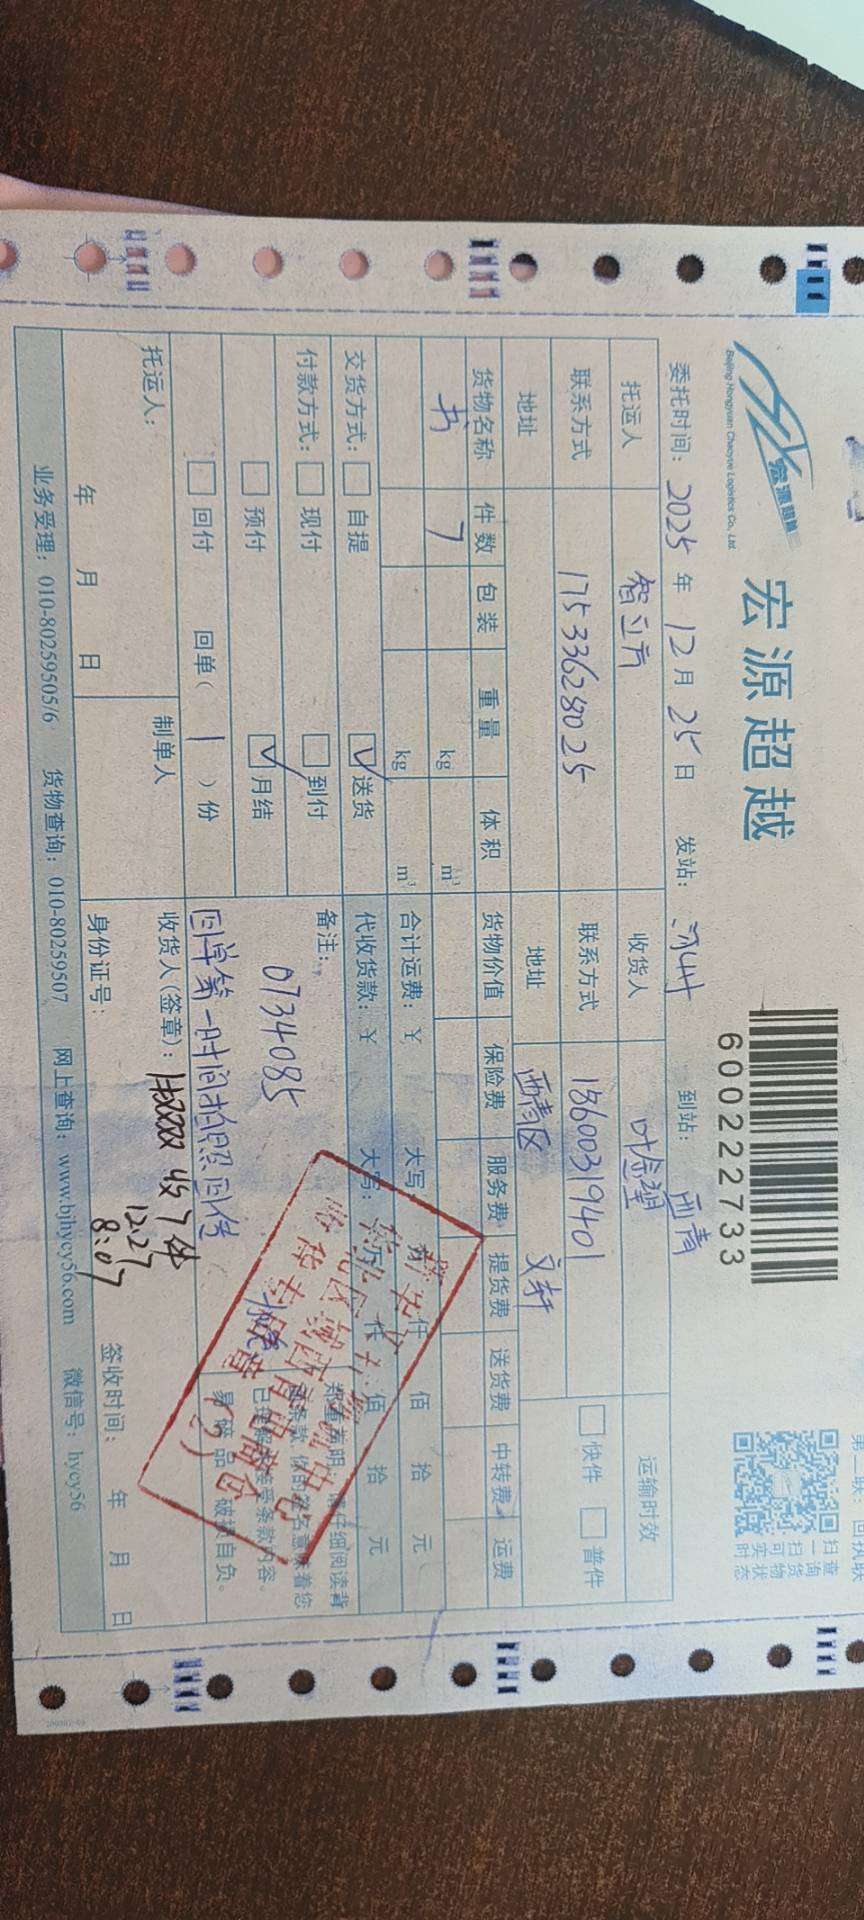 第二联：回执联
宏源超越
Beijing Hongyuan Chaoyue Logistics Co., Ltd.
宏源超越
600222733
扫查
一询
扫货
可物
实状
时态
委托时间：2025年12月25日 发站： 到站：西青
托运人 智立方 收货人 运输时效
联系方式 17533628025 联系方式 13600319401 快件 普件
地址 地址 西青区 文轩
货物名称 件数 包装 重量 体积 货物价值 保险费 服务费 提货费 送货费 中转费 运费
书 7 kg m³
kg m³ 合计运费：￥ 大写： 仟 佰 拾 元
交货方式： 自提 ✓送货 代收货款：￥ 大写： 万 仟 佰 拾 元
付款方式： 现付 到付 备注：
预付 ✓月结 0734085
回付 回单（ 1 ）份 回单第一时间拍照回传
易碎品 破损自负。
托运人： 制单人 收货人(签章)： 收7件
12.27
8:07
年 月 日 身份证号： 签收时间： 年 月 日
业务受理：010-80259505/6 货物查询：010-80259507 网上查询：www.bjhycy56.com 微信号：hycy56